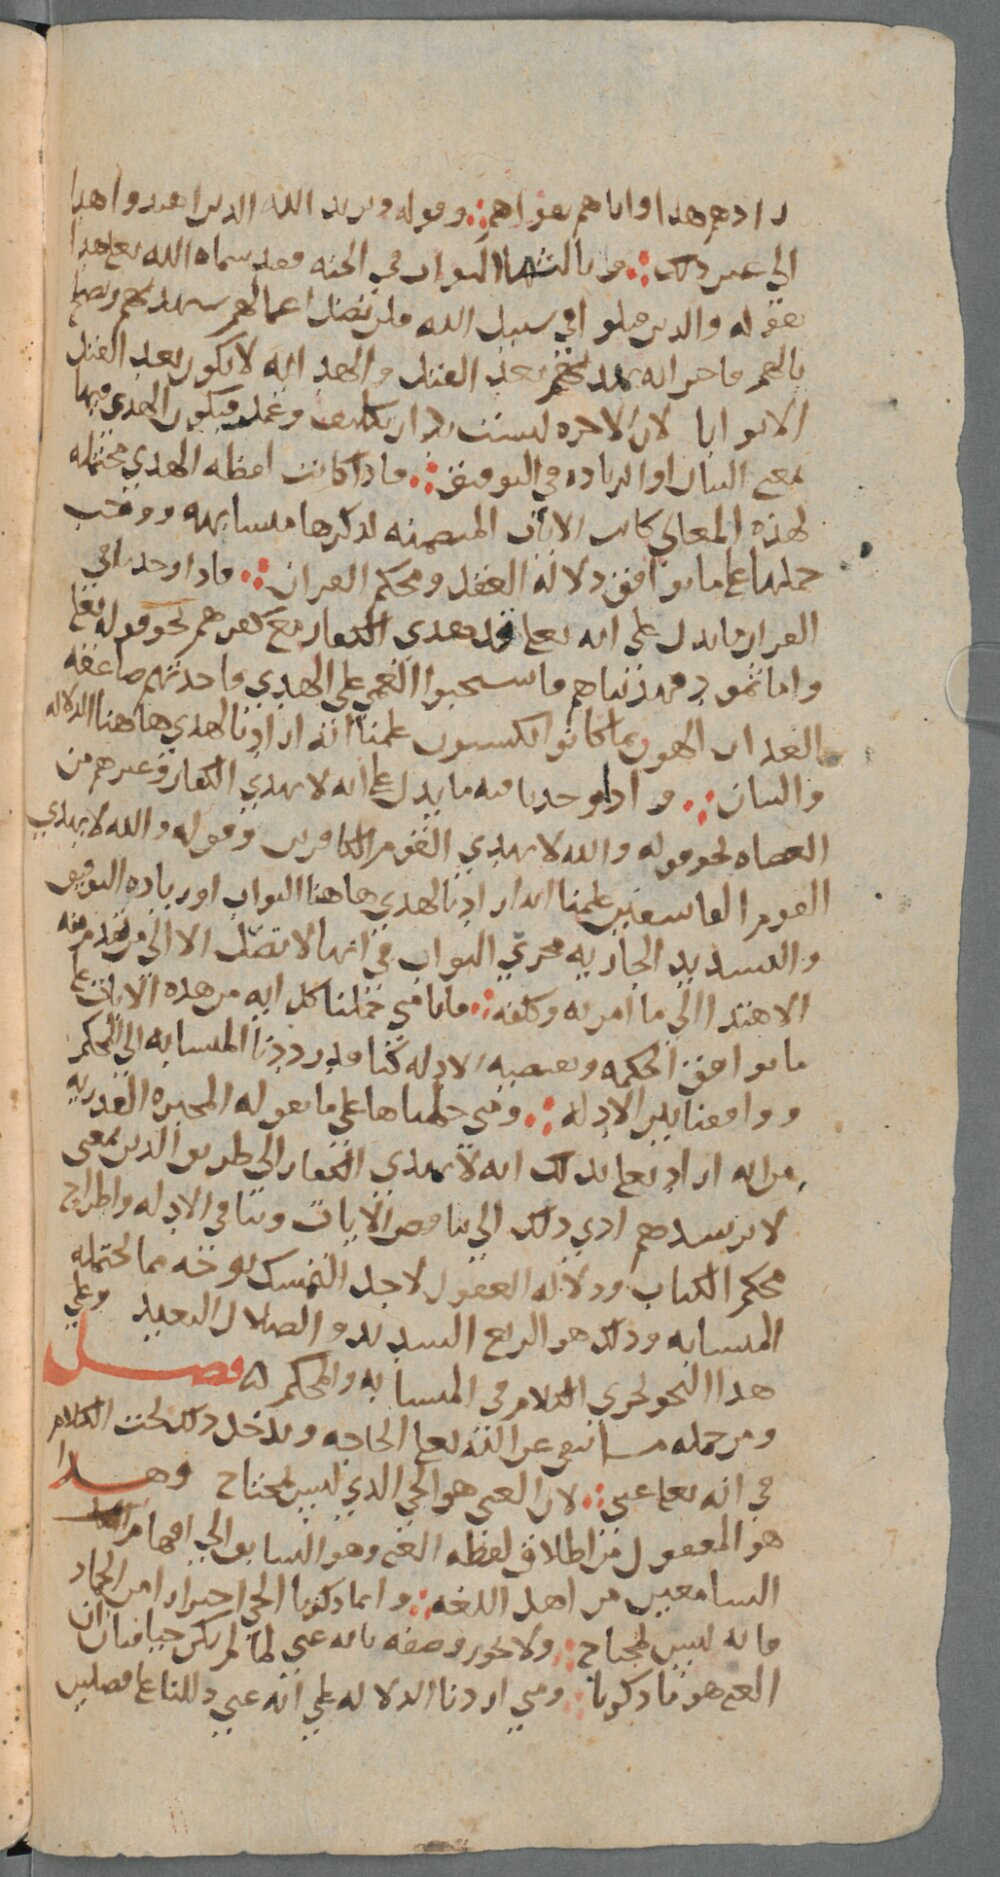 زادهم هدا واتاهم تقواهم ؞ وقوله ويزيد الله الدين اهتدوا هدا
الى غير ذلك ؞ وثالثها الثواب في الجنه فقد سماه الله تعلى هدا
بقوله والدين قتلوا في سبيل الله فلن تضل اعمالهم سيهديهم ويصلح
بالهم فاخبر انه يهديهم بعد القتل والهدا انه لا يكون بعد القتل
الا ثوابا لان الاخره ليست بدار تكليف وعمل فيكون الهدى فيها
بمعنى البيان او الزياده في التوفيق ؞ فاذا كانت لفظه الهدي محتمله
لهذه المعاني كانت الايات المتضمنه لذكرها متشابهه ووجب
حملها على ما يوافق دلاله العقل ومحكم القران ؞ فاذا وجدنا في
القران ما يدل على انه تعلى قد هدى الكفار مع كفرهم نحو قوله تعلى
واما ثمود فهديناهم فاستحبوا العمى على الهدي فاخدتهم صاعقه
العذاب الهون بما كانوا يكسبون علمنا انه اراد بالهدي هاهنا الدلاله
والبيان ؞ واذا وجدنا فيه ما يدل على انه لا يهدي الكفار وغيرهم من
العصاه نحو قوله والله لا يهدي القوم الكافرين وقوله والله لا يهدي
القوم الفاسقين علمنا انه اراد بالهدي هاهنا الثواب او زياده التوفيق
والتسديد الجاريه مجري الثواب في انها لا تصل الا الى من تقدم منه
الاهتدا الى ما امر به وكلفه ؞ فانا متى حملنا كل ايه من هذه الايات على
ما يوافق الحكمه وتقتضيه الادله كنا قد رددنا المتشابه الى المحكم
ووافقنا بين الادله ؞ ومتى حملناها على ما يقوله المجبره القدريه
من انه اراد تعلى بذلك انه لا يهدي الكفار الى طريق الدين بمعنى
لا يرشدهم ادي ذلك الى تناقض الايات وتنافي الادله واطراح
محكم الكتاب ودلاله العقول لاجل التمسك بوجه مما يحتمله
المتشابه وذلك هو الزيغ الشديد والضلال البعيد وعلى
هدا النحو يجري الكلام في المتشابه والمحكم ⁂ فصل
ومن جمله ما ينفى عن الله تعلى الحاجه ويدخل ذلك تحت الكلام
في انه تعلى غني ؞ لان الغنى هو الحي الذي ليس بمحتاج وهدا
هو المعقول من اطلاق لفظه الغني وهو السابق الى افهام
السامعين من اهل اللغه ؞ وانما ذكرنا الحي احترازا من الجماد
فانه ليس بمحتاج ؞ ولا يجوز وصفه بانه غني لما لم يكن حيا فبان ان
الغني هو ما ذكرنا ؞ ومتى اردنا الدلاله على انه غني دللنا على فصلين